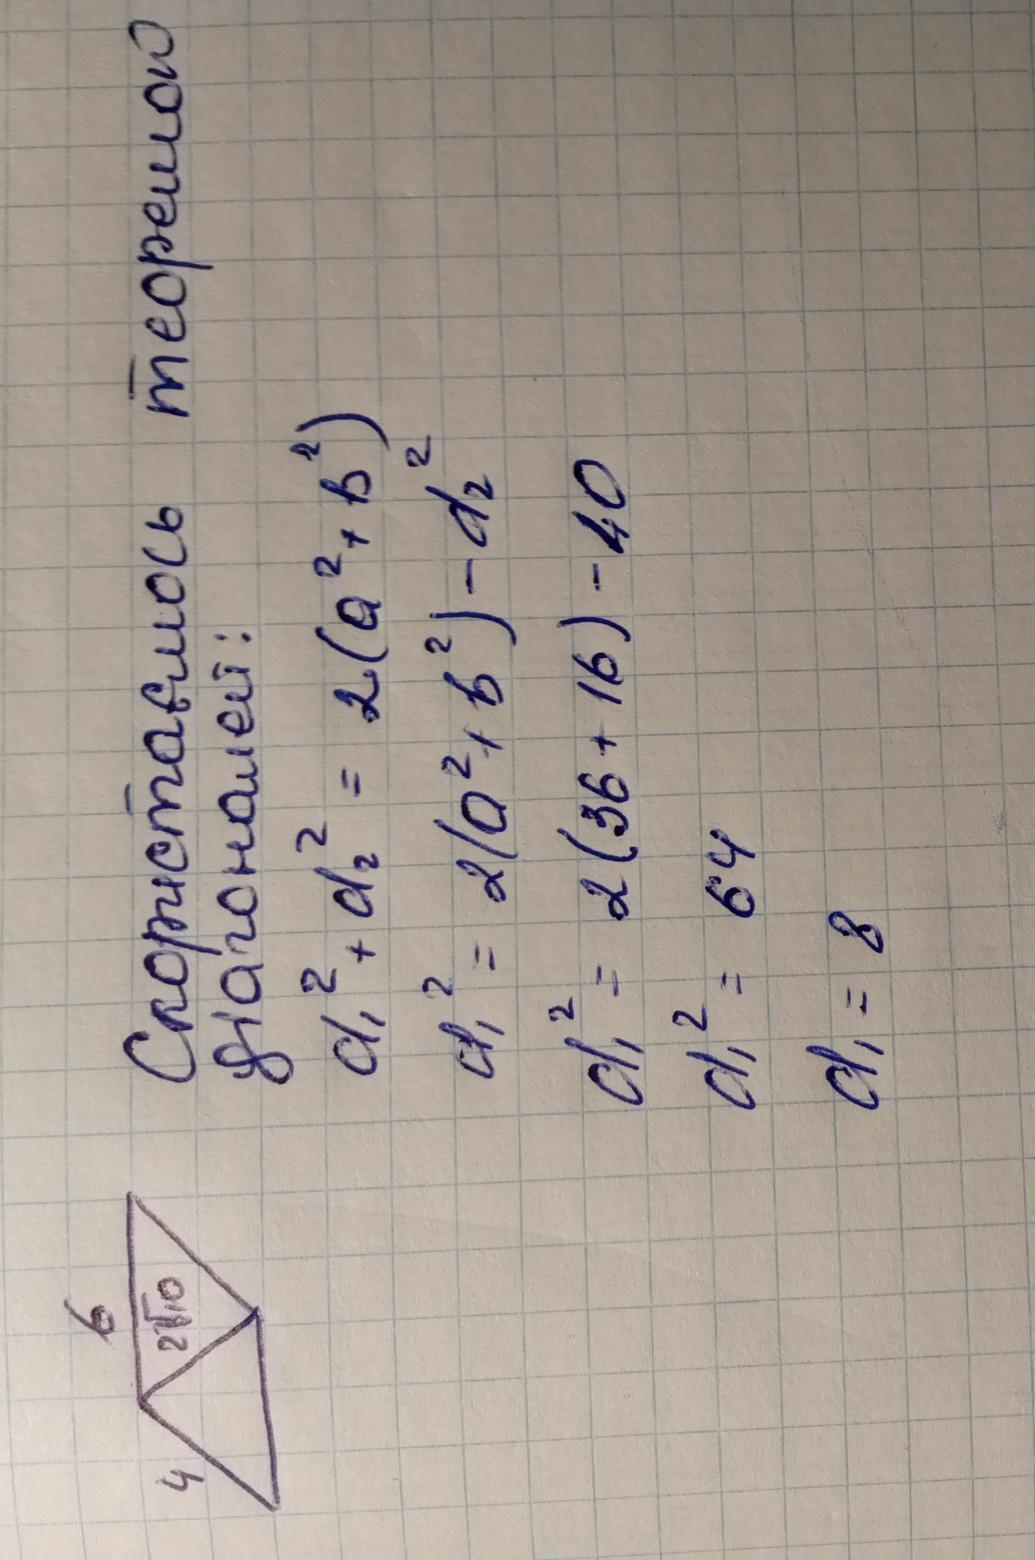 4
6
2√10
Скориставшись теоремою
діагоналей:
d₁² + d₂² = 2(a² + b²)
d₁² = 2(a² + b²) - d₂²
d₁² = 2(36 + 16) - 40
d₁² = 64
d₁ = 8